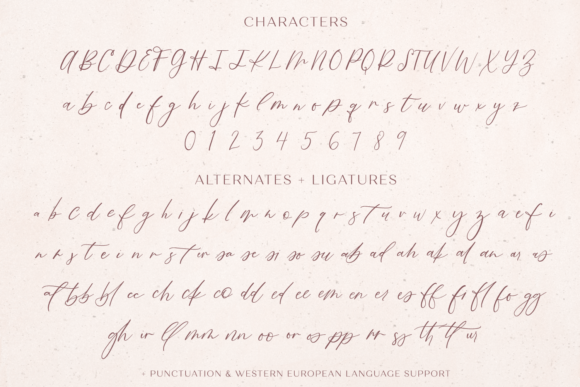 CHARACTERS
A B C D E F G H I J K L M N O P Q R S T U V W X Y Z
a b c d e f g h i j k l m n o p q r s t u v w x y z
0 1 2 3 4 5 6 7 8 9
ALTERNATES + LIGATURES
a b c d e f g h i j k l m n o p q r s t u v w x y z a e f i
n r s t e i n r s t w sa se si so su ab ad ah ak al an ar as
at bb bl cc ch ck co dd ed ee em en er es ff fi fl fo gg
gh ir ll mm nn oo or os pp rr ss th tt ur
+ PUNCTUATION & WESTERN EUROPEAN LANGUAGE SUPPORT